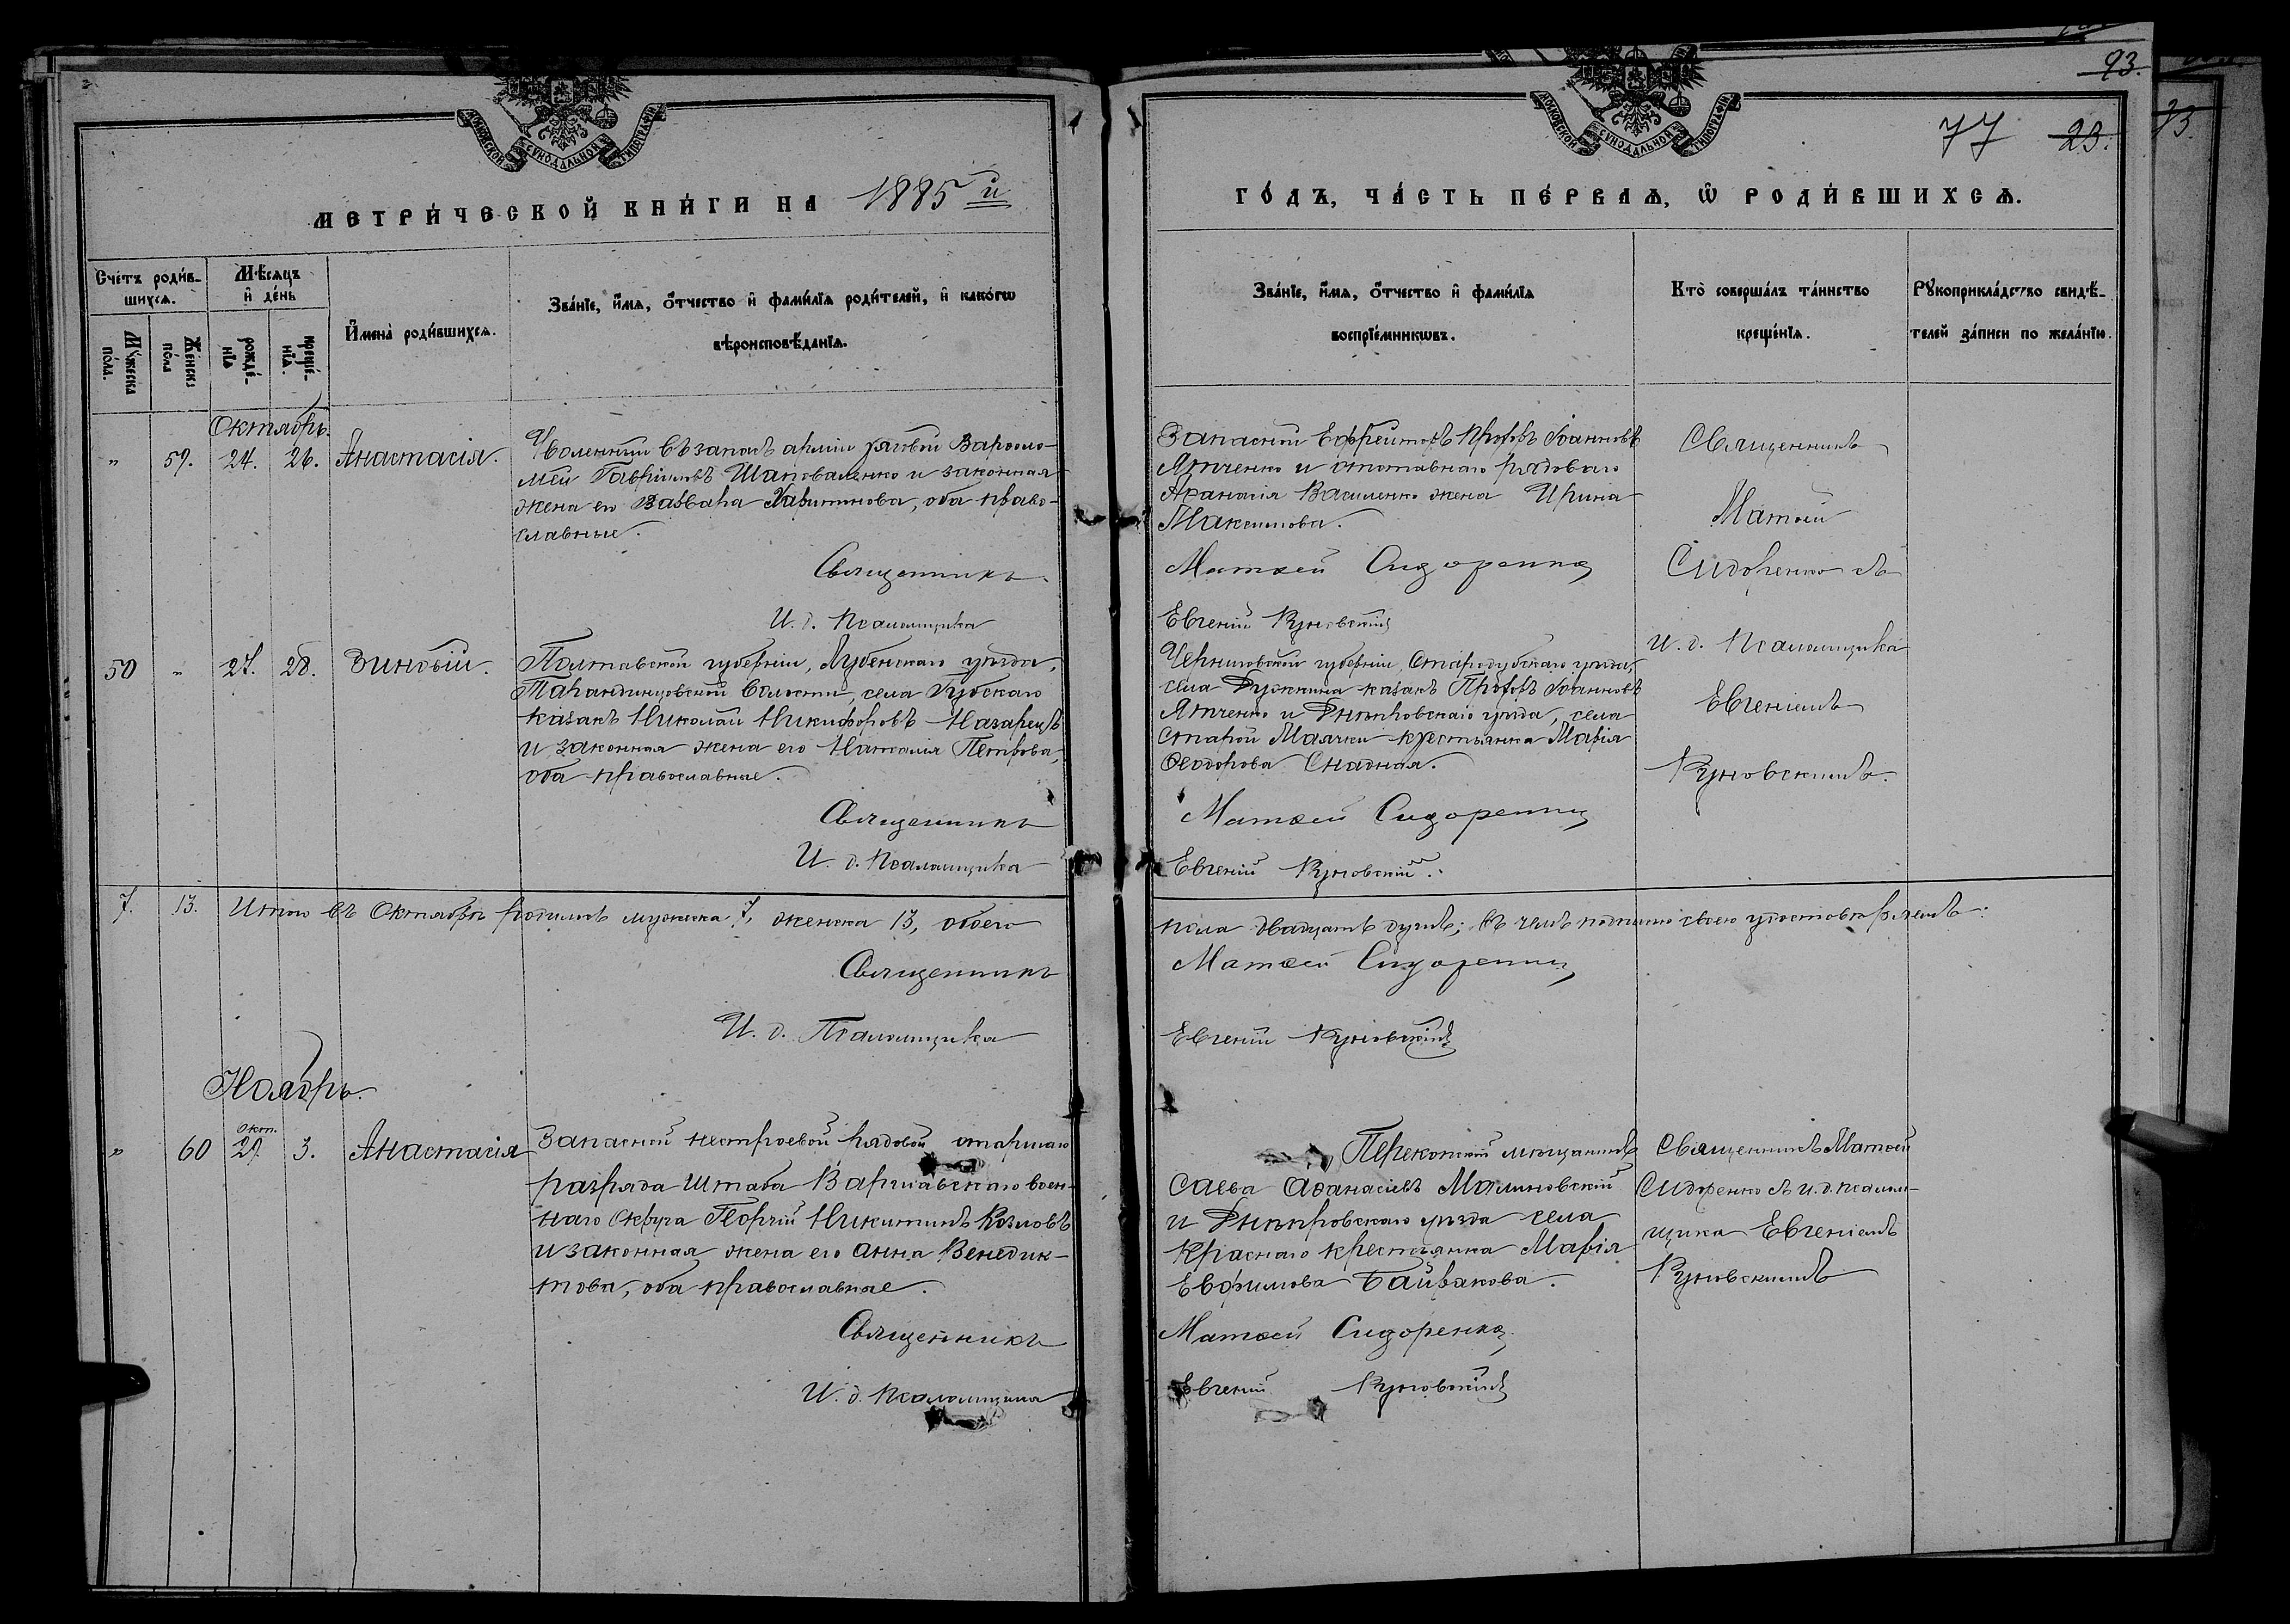 93.
77 23.
73.
МОСКОВСКОЙ СѴНОДАЛЬНОЙ ТИПОГРАФІИ
МОСКОВСКОЙ СѴНОДАЛЬНОЙ ТИПОГРАФІИ
МЕТРИ́ЧЕСКОЙ КНИ́ГИ НА 1885й
ГО́ДЪ, ЧА́СТЬ ПЕ́РВАѦ, Ѡ РОДИ́ВШИХСѦ.
Сче́тъ роди́в-
шихсѧ.
Мѣ́сѧцъ
и҆ де́нь
Му́жеска
по́ла.
Же́нска
по́ла
рожде́-
нїѧ
креще́-
нїѧ.
И҆мена̀ роди́вшихсѧ.
Зва́нїе, и҆́мѧ, ѻ҆́тчество и҆ фами́лїѧ роди́телей, и҆ како́гѡ
вѣроисповѣ́данїѧ.
Зва́нїе, и҆́мѧ, ѻ҆́тчество и҆ фами́лїѧ
воспрїе́мникѡвъ.
Кто̀ соверша́лъ та́инство
креще́нїѧ.
Рꙋкоприкла́дство свидѣ́-
телей за́писи по жела́нїю.
Октябрь.
" 59. 24. 26. Анастасія.
Уволенный въ запасъ арміи рядовой Варѳоло-
мей Гавриловъ Шаповаленко и законная
жена его Варвара Харитинова, оба право-
славные.
Священникъ
И. д. Псаломщика
Запасной Ефрейторъ Профъ Іоанновъ
Ятченко и отставнаго рядоваго
Аѳанасія Василенко жена Ирина
Максимова.
Матѳей Сидоренко
Евгеній Куновскій
Священникъ
Матѳей
Сидоренко съ
и. д. Псаломщика
Евгеніемъ
Куновскимъ.
50 " 27. 28. Зиновій.
Полтавской губерніи, Лубенскаго уѣзда,
Тарандинцовской волости, села
казакъ Николай Никифоровъ Назарецъ
и законная жена его Наталія Петрова,
оба православные.
Священникъ
И. д. Псаломщика
Черниговской губерніи, Стародубскаго уѣзда,
села казакъ Профъ Іоанновъ
Ятченко и Днѣпровскаго уѣзда, села
Старой Маячки крестьянка Марія
Ѳеодорова Снадная.
Матѳей Сидоренко
Евгеній Куновскій.
7. 13. Итого въ Октябрѣ родилось мужеска 7, женска 13, обоего
пола двадцать душъ; въ чемъ подписью своею удостовѣряемъ:
Священникъ
Матѳей Сидоренко
И. д. Псаломщика
Евгеній Куновскій
Ноябрь.
" 60 Окт. 29. 3. Анастасія
Запасной нестроевой рядовой старшаго
разряда Штаба Варшавскаго воен-
наго Округа Георгій Никитинъ Козловъ
и законная жена его Анна Венедик-
това, оба православные.
Священникъ
И. д. Псаломщика
Перекопскій мѣщанинъ
Савва Аѳанасіевъ Малиновскій
и Днѣпровскаго уѣзда села
Краснаго крестьянка Марія
Евфимова Байракова.
Матѳей Сидоренко
Евгеній Куновскій
Священникъ Матѳей
Сидоренко съ и. д. псалом-
щика Евгеніемъ
Куновскимъ